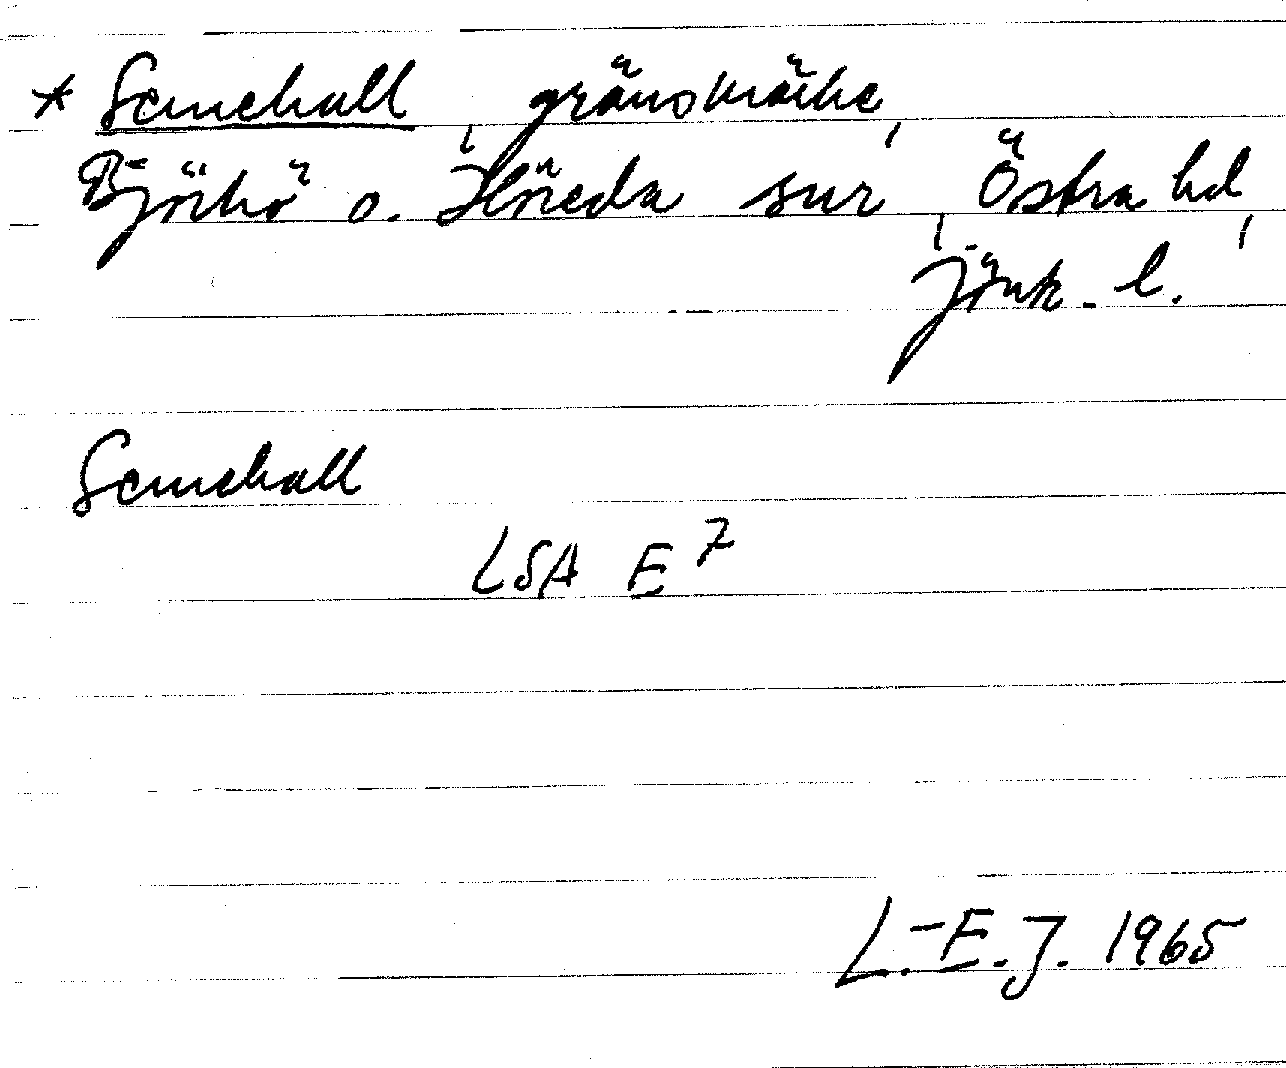 * Semehall, gränsmärke,
Björkö o. Höreda snr, Östra hd,
Jönk. l.
Semehall
LSA E 7
L.-E.J. 1965